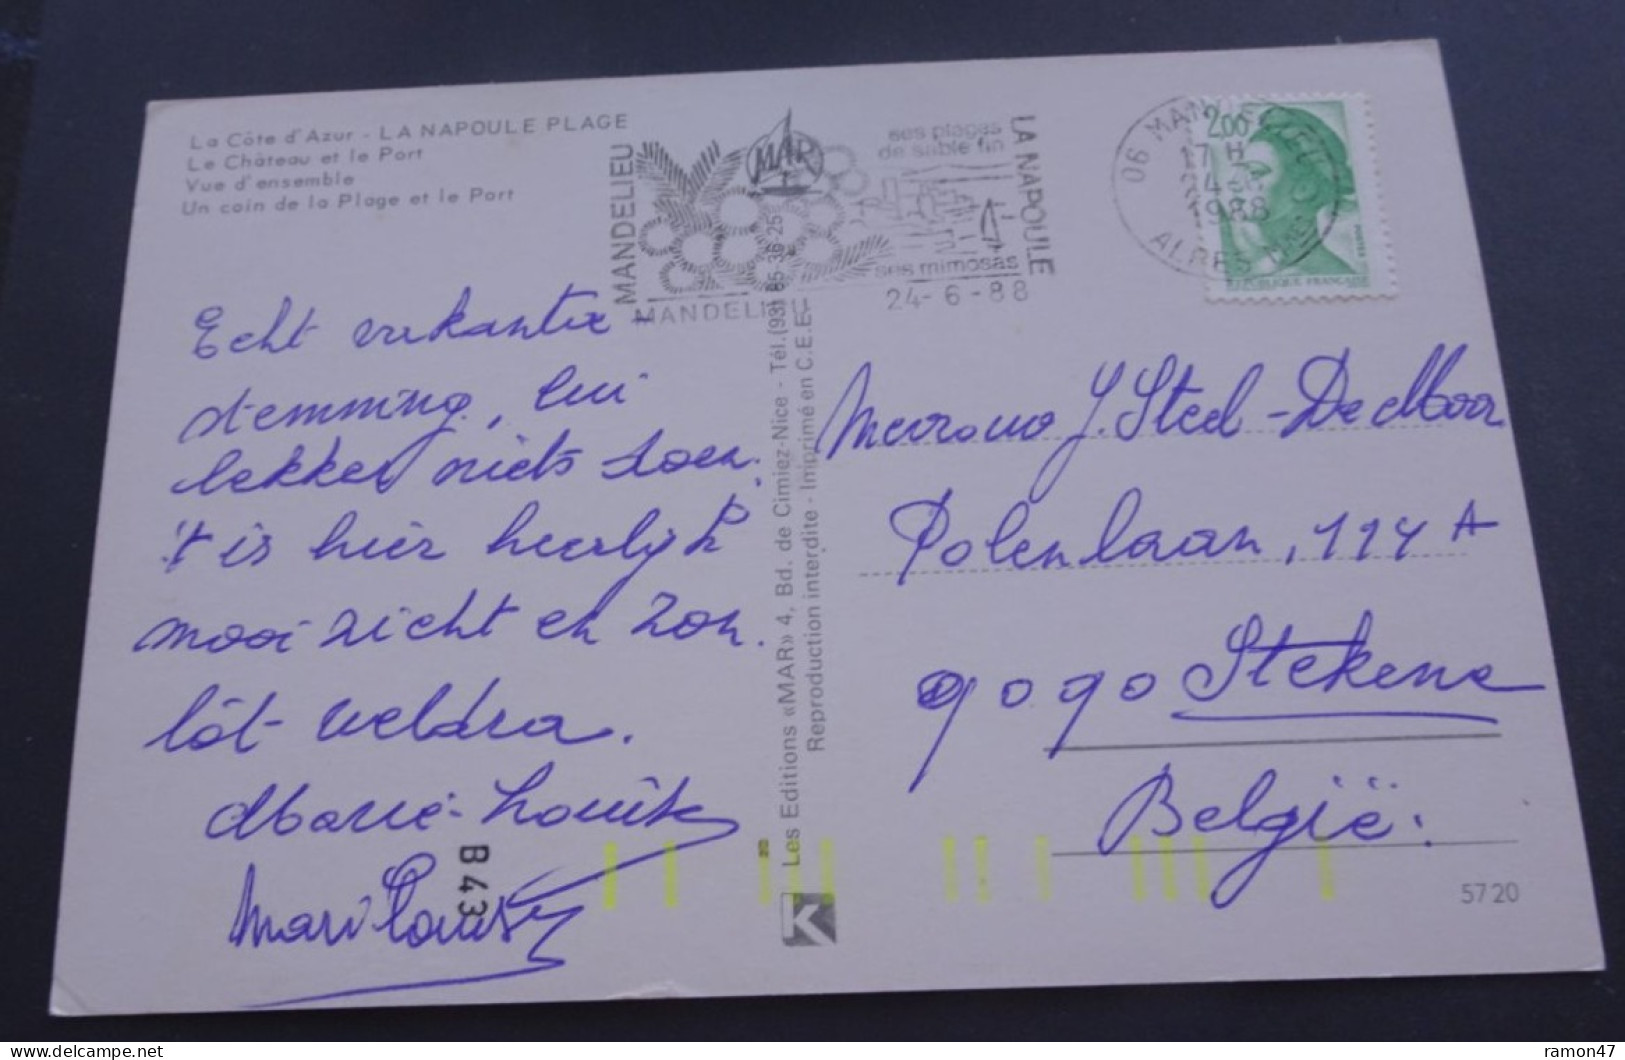 La Côte d'Azur - LA NAPOULE PLAGE
Le Château et le Port
Vue d'ensemble
Un coin de la Plage et le Port
MANDELIEU
MAR
ses plages
de sable fin
ses mimosas
LA NAPOULE
MANDELIEU
24-6-88
06 MANDELIEU
1988
ALPES
2,00
RÉPUBLIQUE FRANÇAISE
Echt vakantie -
stemming, lui
lekker niets doen.
't is hier heerlijk
mooi zicht en zon.
tòt weldra.
Marie-Louise
Marie Louise
B43
Les Editions «MAR» 4, Bd. de Cimiez-Nice - Tél.(93) 85 36 25
Reproduction interdite - Imprimé en C.E.E.
K
Mevrouw J. Steel - De Moor
Polenlaan, 114 A
9090 Stekene
België.
5720
ramon47